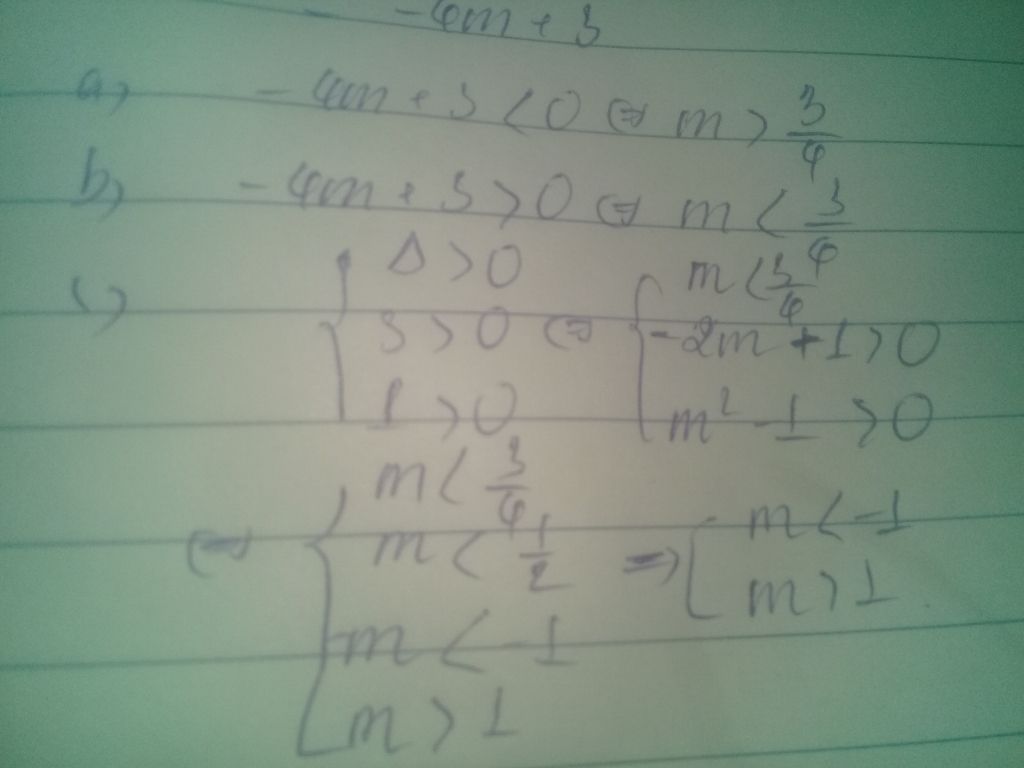 -4m + 3
a) -4m + 3 < 0 ⇔ m > 3/4
b) -4m + 3 > 0 ⇔ m < 3/4
c) { Δ > 0 ⇔ { m < 3/4
S > 0 -2m + 1 > 0
P > 0 m² - 1 > 0
⇔ { m < 3/4
m < 1/2 ⇒ [ m < -1
m > 1
[ m < -1
m > 1